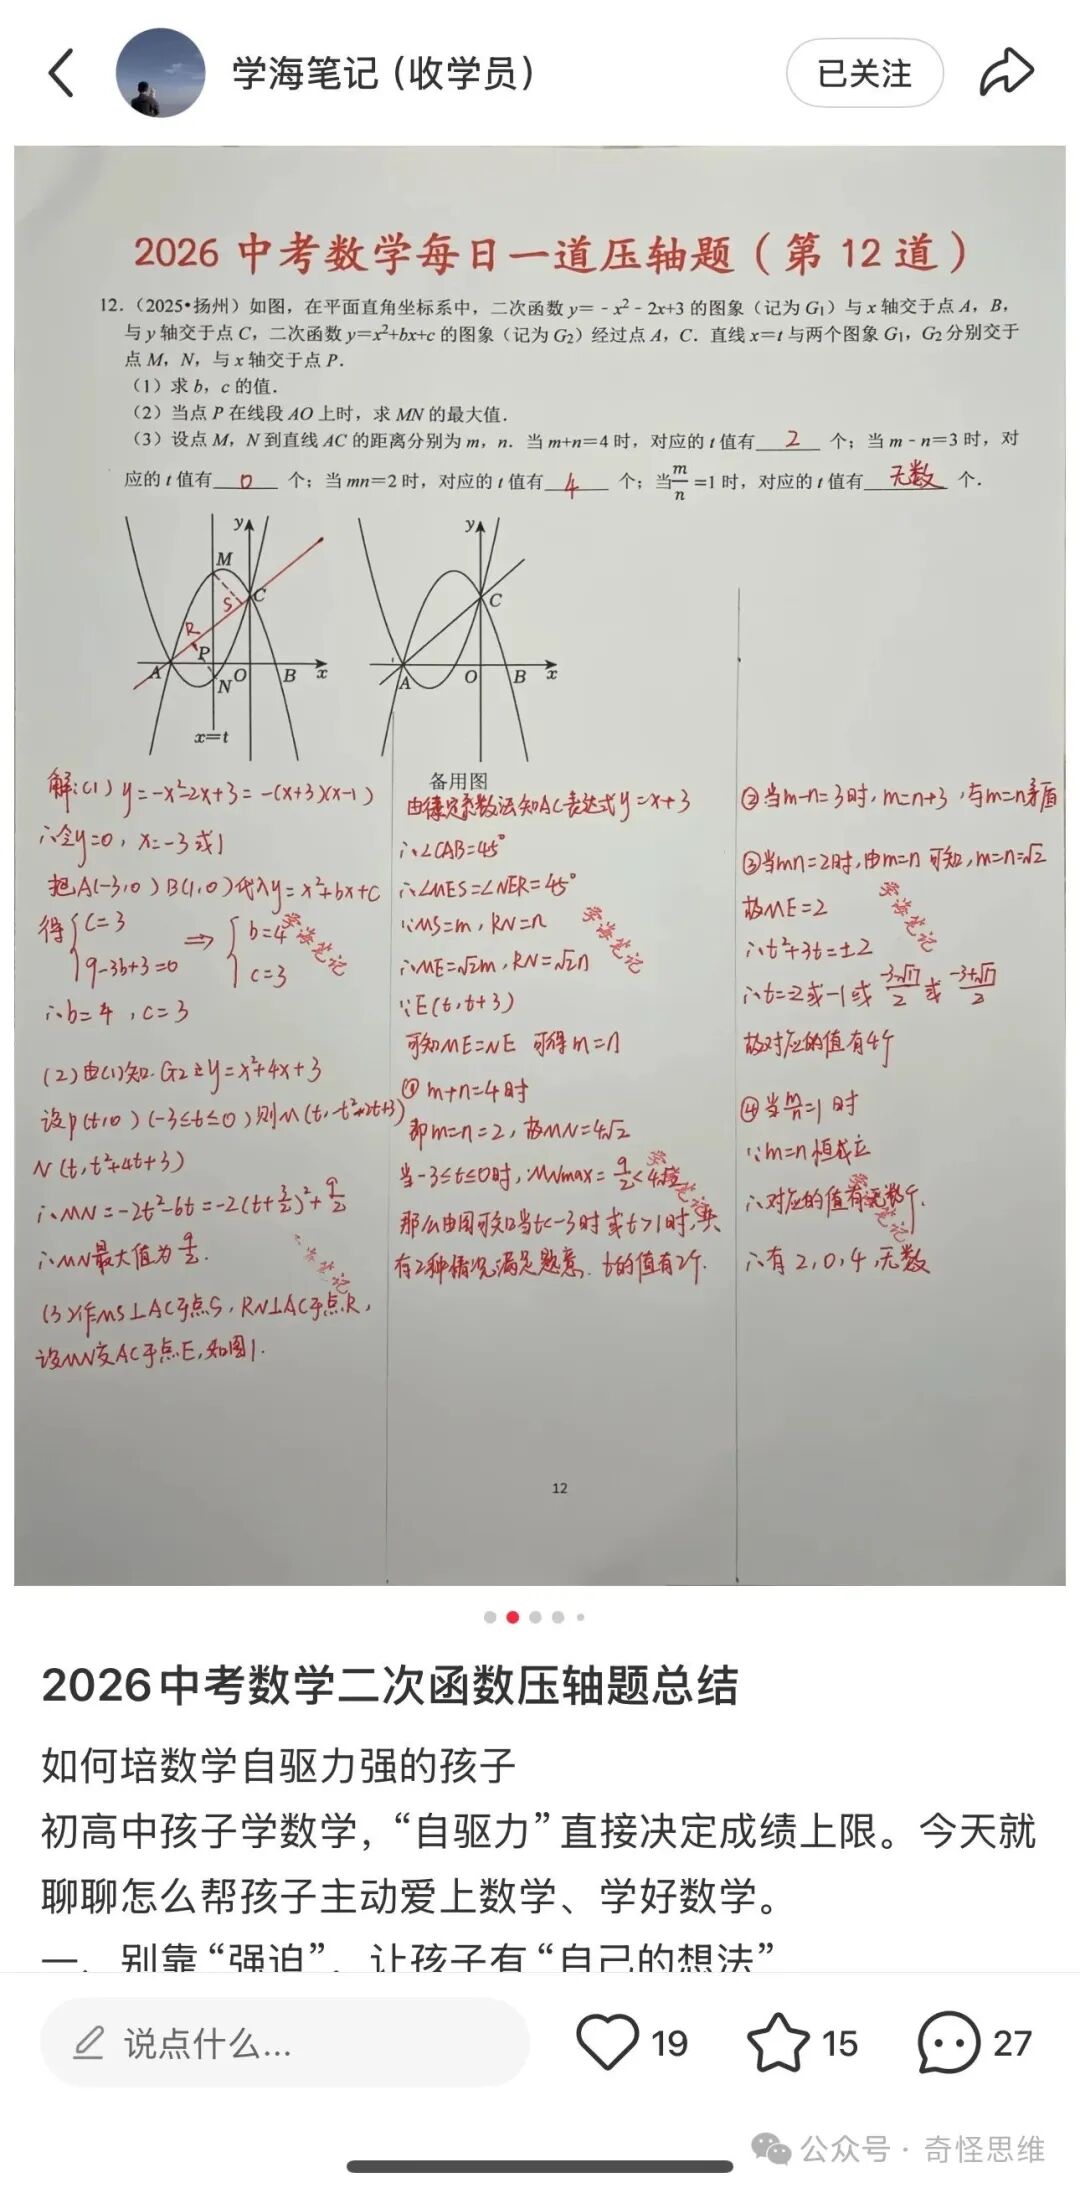 学海笔记（收学员）
已关注
2026中考数学每日一道压轴题（第12道）
12.（2025•扬州）如图，在平面直角坐标系中，二次函数y=﹣x²﹣2x+3的图象（记为G₁）与x轴交于点A，B，
与y轴交于点C，二次函数y=x²+bx+c的图象（记为G₂）经过点A，C．直线x=t与两个图象G₁，G₂分别交于
点M，N，与x轴交于点P．
（1）求b，c的值．
（2）当点P在线段AO上时，求MN的最大值．
（3）设点M，N到直线AC的距离分别为m，n．当m+n=4时，对应的t值有 2 个；当m﹣n=3时，对
应的t值有 0 个；当mn=2时，对应的t值有 4 个；当m/n=1时，对应的t值有 无数 个．
y
M
S
C
R
P
A
N
O
B
x
x=t
y
C
A
O
B
x
备用图
解:(1) y=-x²-2x+3=-(x+3)(x-1)
∴令y=0, x=-3或1
把A(-3,0) B(1,0)代入y=x²+bx+c
得{c=3 9-3b+3=0 ⇒ {b=4 c=3
∴b=4, c=3
(2)由(1)知. G2是y=x²+4x+3
设P(t,0) (-3≤t≤0)则M(t,-t²-2t+3)
N(t,t²+4t+3)
∴MN=-2t²-6t=-2(t+3/2)²+9/2
∴MN最大值为9/2.
(3)作MS⊥AC于点S, RN⊥AC于点R,
设MN交AC于点E,如图1.
由待定系数法知AC表达式y=x+3
∴∠CAB=45°
∴∠MES=∠NER=45°
∵MS=m, RN=n
∴ME=√2m, RN=√2n
∵E(t,t+3)
可知ME=NE 可得m=n
① m+n=4时
即m=n=2, 故MN=4√2
当-3≤t≤0时, ∵MNmax=9/2<4√2
那么由图可知当t<-3时或t>1时,共
有2种情况满足题意. t的值有2个.
②当m-n=3时, m=n+3, 与m=n矛盾
③当mn=2时,由m=n可知, m=n=√2
故ME=2
∴t²+3t=±2
∴t=-2或-1或(-3-√17)/2或(-3+√17)/2
故对应的值有4个
④当m/n=1时
∵m=n恒成立
∴对应的值有无数个.
∴有2,0,4,无数
学海笔记
学海笔记
学海笔记
学海笔记
学海笔记
学海笔记
12
2026中考数学二次函数压轴题总结
如何培数学自驱力强的孩子
初高中孩子学数学，“自驱力”直接决定成绩上限。今天就
聊聊怎么帮孩子主动爱上数学、学好数学。
一、别靠“强迫”，让孩子有“自己的想法”
说点什么...
19
15
27
公众号·奇怪思维